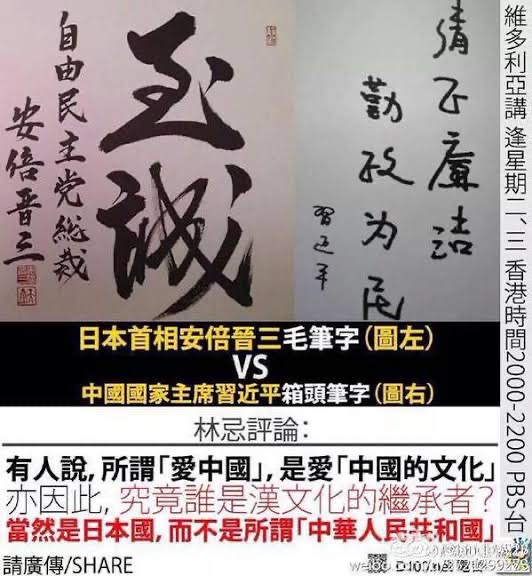 至誠
自由民主党総裁
安倍晋三
清正廉洁
勤政为民
習近平
維多利亞講 逢星期二、三 香港時間2000-2200 PBS台
日本首相安倍晉三毛筆字(圖左)
VS
中國國家主席習近平箱頭筆字(圖右)
林忌評論:
有人說,所謂「愛中國」,是愛「中國的文化」
亦因此,究竟誰是漢文化的繼承者?
當然是日本國,而不是所謂「中華人民共和國」
請廣傳/SHARE